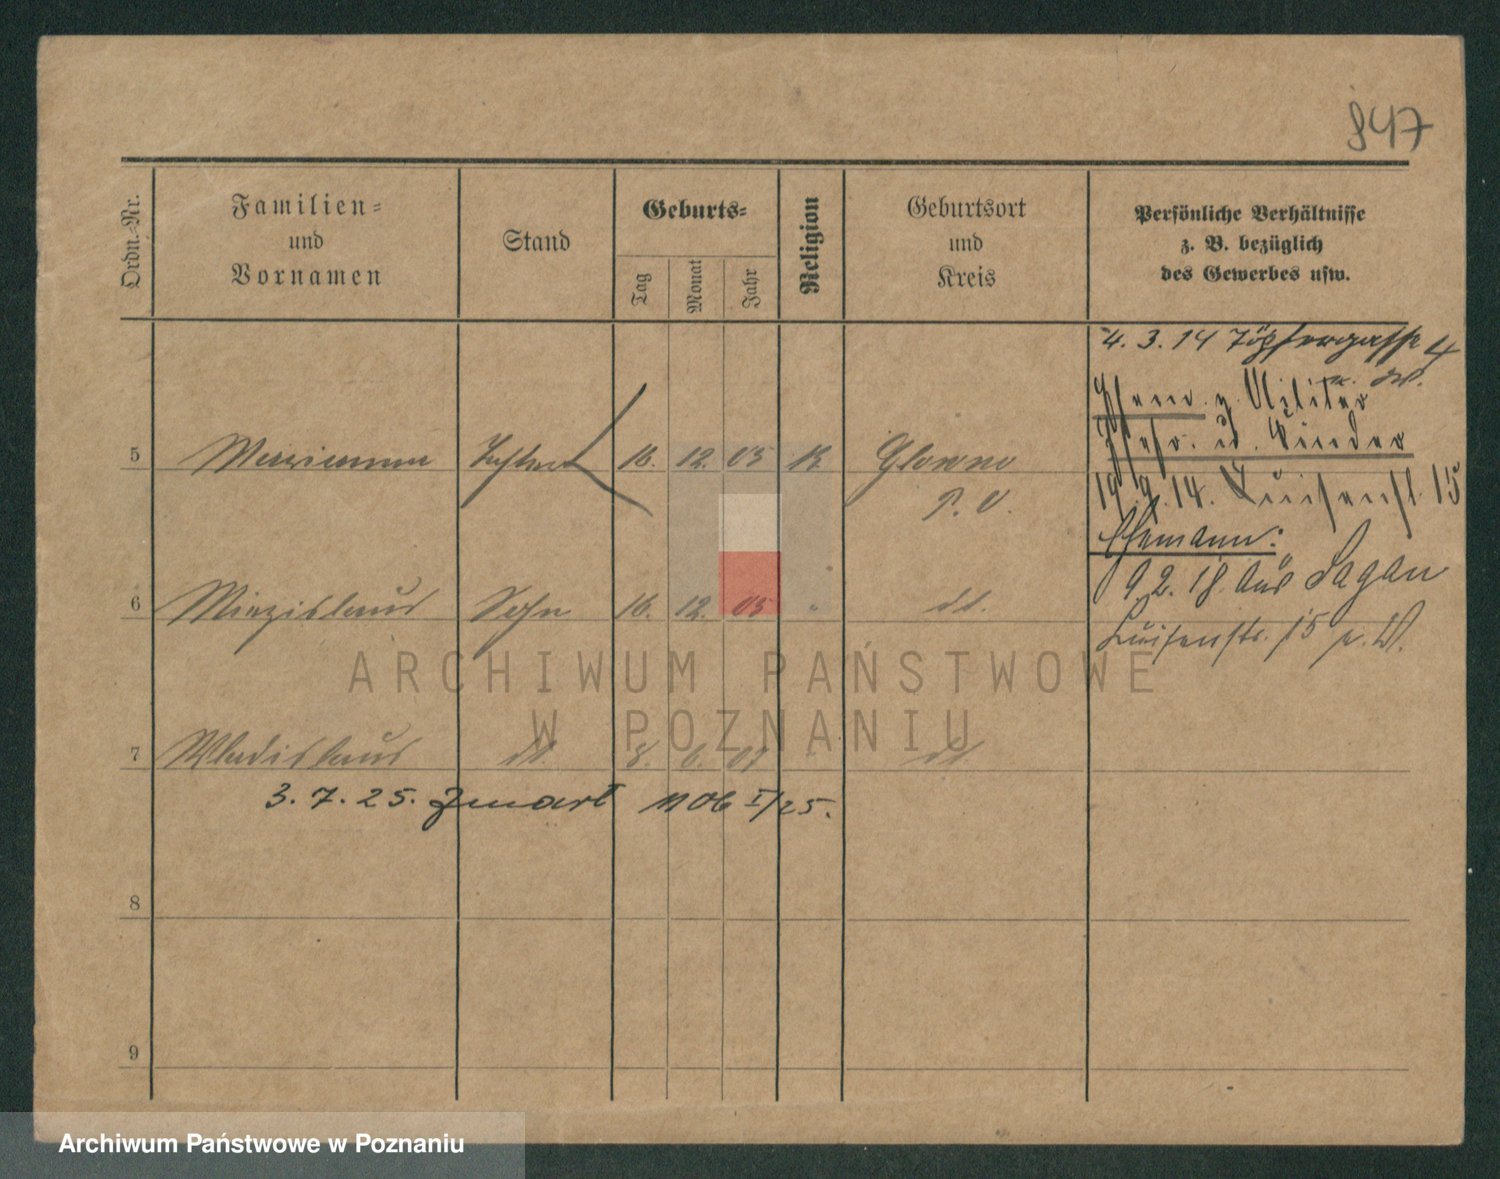 847
Ordn.-Nr.
Familien-
und
Vornamen
Stand
Geburts-
Tag
Monat
Jahr
Religion
Geburtsort
und
Kreis
Persönliche Verhältnisse
z. B. bezüglich
des Gewerbes usw.
4. 3. 14 Töpfergasse 4
Ehem. z. Militär
Ehefr. u. Kinder
19. 9. 14. Luisenstr. 15
Ehemann:
9. 2. 18 aus Sagan
Luisenstr. 15 p. W.
5 Marianna Tochter 16. 12. 05 k. Glowno
P. O.
6 Miezislaus Sohn 16. 12. 05 " dt.
7 Wladislaus dt. 8. 6. 07 " dt.
3. 7. 25. 1106 I/25.
8
9
ARCHIWUM PAŃSTWOWE
W POZNANIU
Archiwum Państwowe w Poznaniu